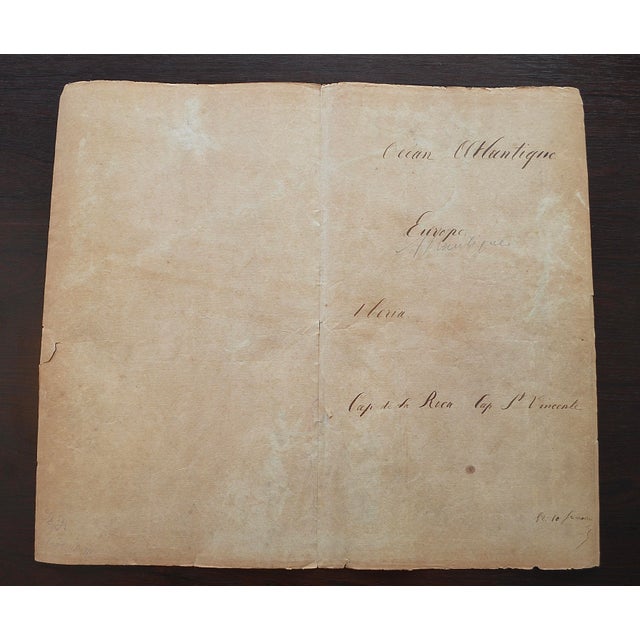 Océan Atlantique
Europe
Atlantique
Iberia
Cap de la Roca Cap St Vincente